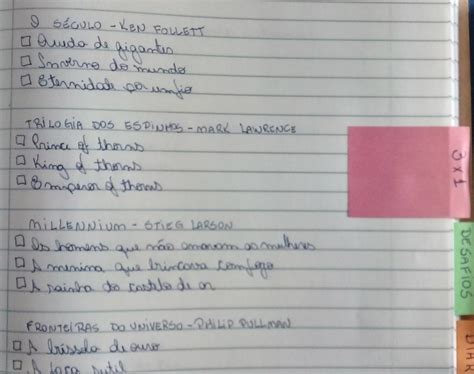 O SÉCULO - KEN FOLLETT
Queda de gigantes
Inverno do mundo
Eternidade por um fio
TRILOGIA DOS ESPINHOS - MARK LAWRENCE
Prince of thorns
King of thorns
Emperor of thorns
MILLENNIUM - STIEG LARSON
Os homens que não amavam as mulheres
A menina que brincava com fogo
A rainha do castelo de ar
FRONTEIRAS DO UNIVERSO - PHILIP PULLMAN
A bússola de ouro
A faca sutil
3 x 1
DESAFIOS